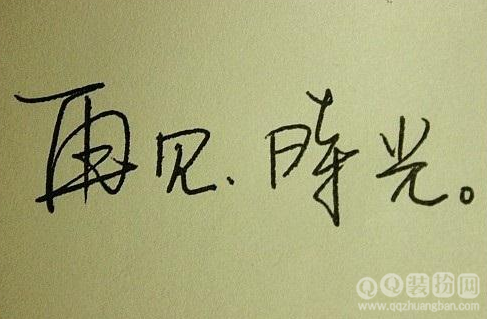 再见、時光。
QQ装扮网
www.qqzhuangban.com